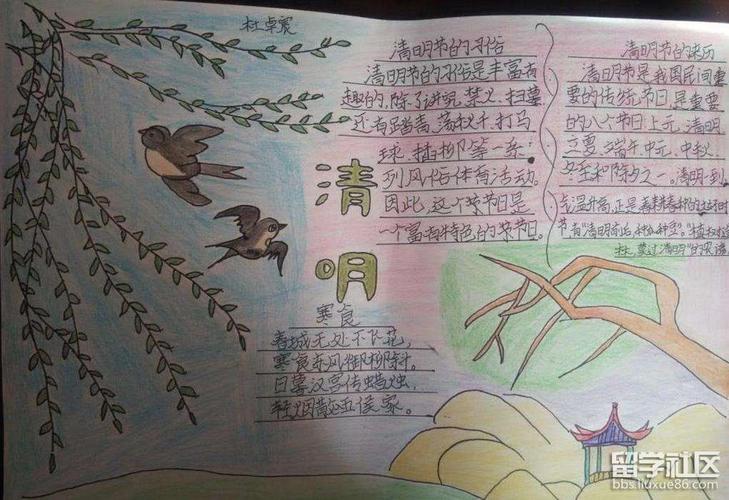 杜卓震
清明节的习俗
清明节的习俗是丰富有
趣的,除了讲究禁火、扫墓,
还有踏青、荡秋千、打马
球、插柳等一系
列风俗体育活动。
因此,这个节日是
一个富有特色的节日。
清明节的来历
清明节是我国民间重
要的传统节日,是重要
的八个节日:上元、清明、
立夏、端午、中元、中秋、
冬至和除夕之一。清明一到,
气温升高,正是春耕春种的大好时
节,有"清明前后,种瓜种豆"。"植树造
林,莫过清明"的农谚
清明
寒食
春城无处不飞花,
寒食东风御柳斜。
日暮汉宫传蜡烛,
轻烟散五侯家。
留学社区
bbs.liuxue86.com